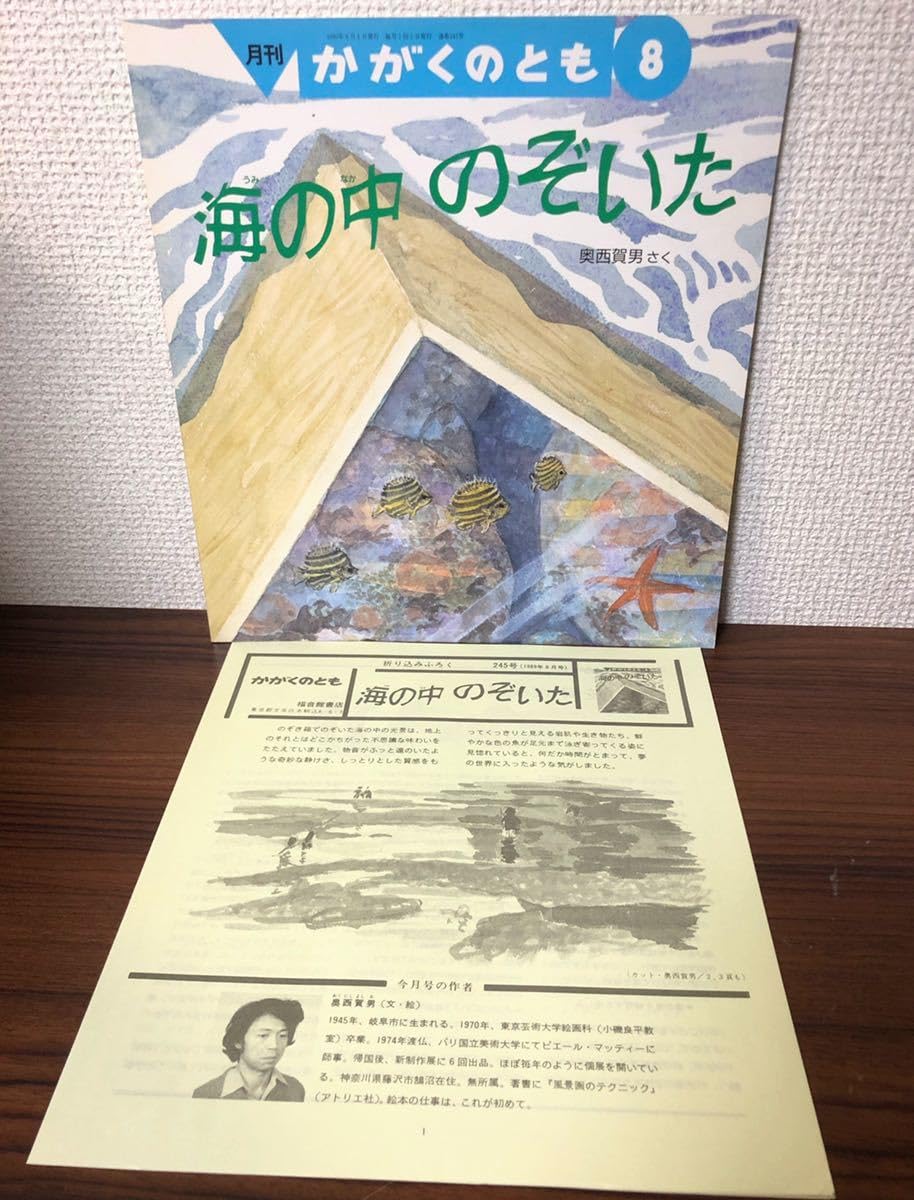 1989年8月1日発行 毎月1回1日発行 通巻245号
月刊
かがくのとも
8
うみ なか
海の中 のぞいた
奥西賀男 さく
折り込みふろく 245号(1989年8月号)
かがくのとも
福音館書店
海の中 のぞいた
海の中 のぞいた
のぞき箱でのぞいた海の中の光景は、地上
のそれとはどこかちがった不思議な味わいを
たたえていました。物音がふっと遠のいたよ
うな奇妙な静けさ、しっとりとした質感をも
ってくっきりと見える岩肌や生き物たち、鮮
やかな色の魚が足元まで泳ぎ寄ってくる姿に
見惚れていると、何だか時間がとまって、夢
の世界に入ったような気がしました。
(カット・奥西賀男/2、3頁も)
今月号の作者
おくにし よしお
奥西賀男(文・絵)
1945年、岐阜市に生まれる。1970年、東京芸術大学絵画科(小磯良平教
室)卒業。1974年渡仏、パリ国立美術大学にてピエール・マッティーに
師事。帰国後、新制作展に6回出品。ほぼ毎年のように個展を開いてい
る。神奈川県藤沢市鵠沼在住。無所属。著書に『風景画のテクニック』
(アトリエ社)。絵本の仕事は、これが初めて。
1